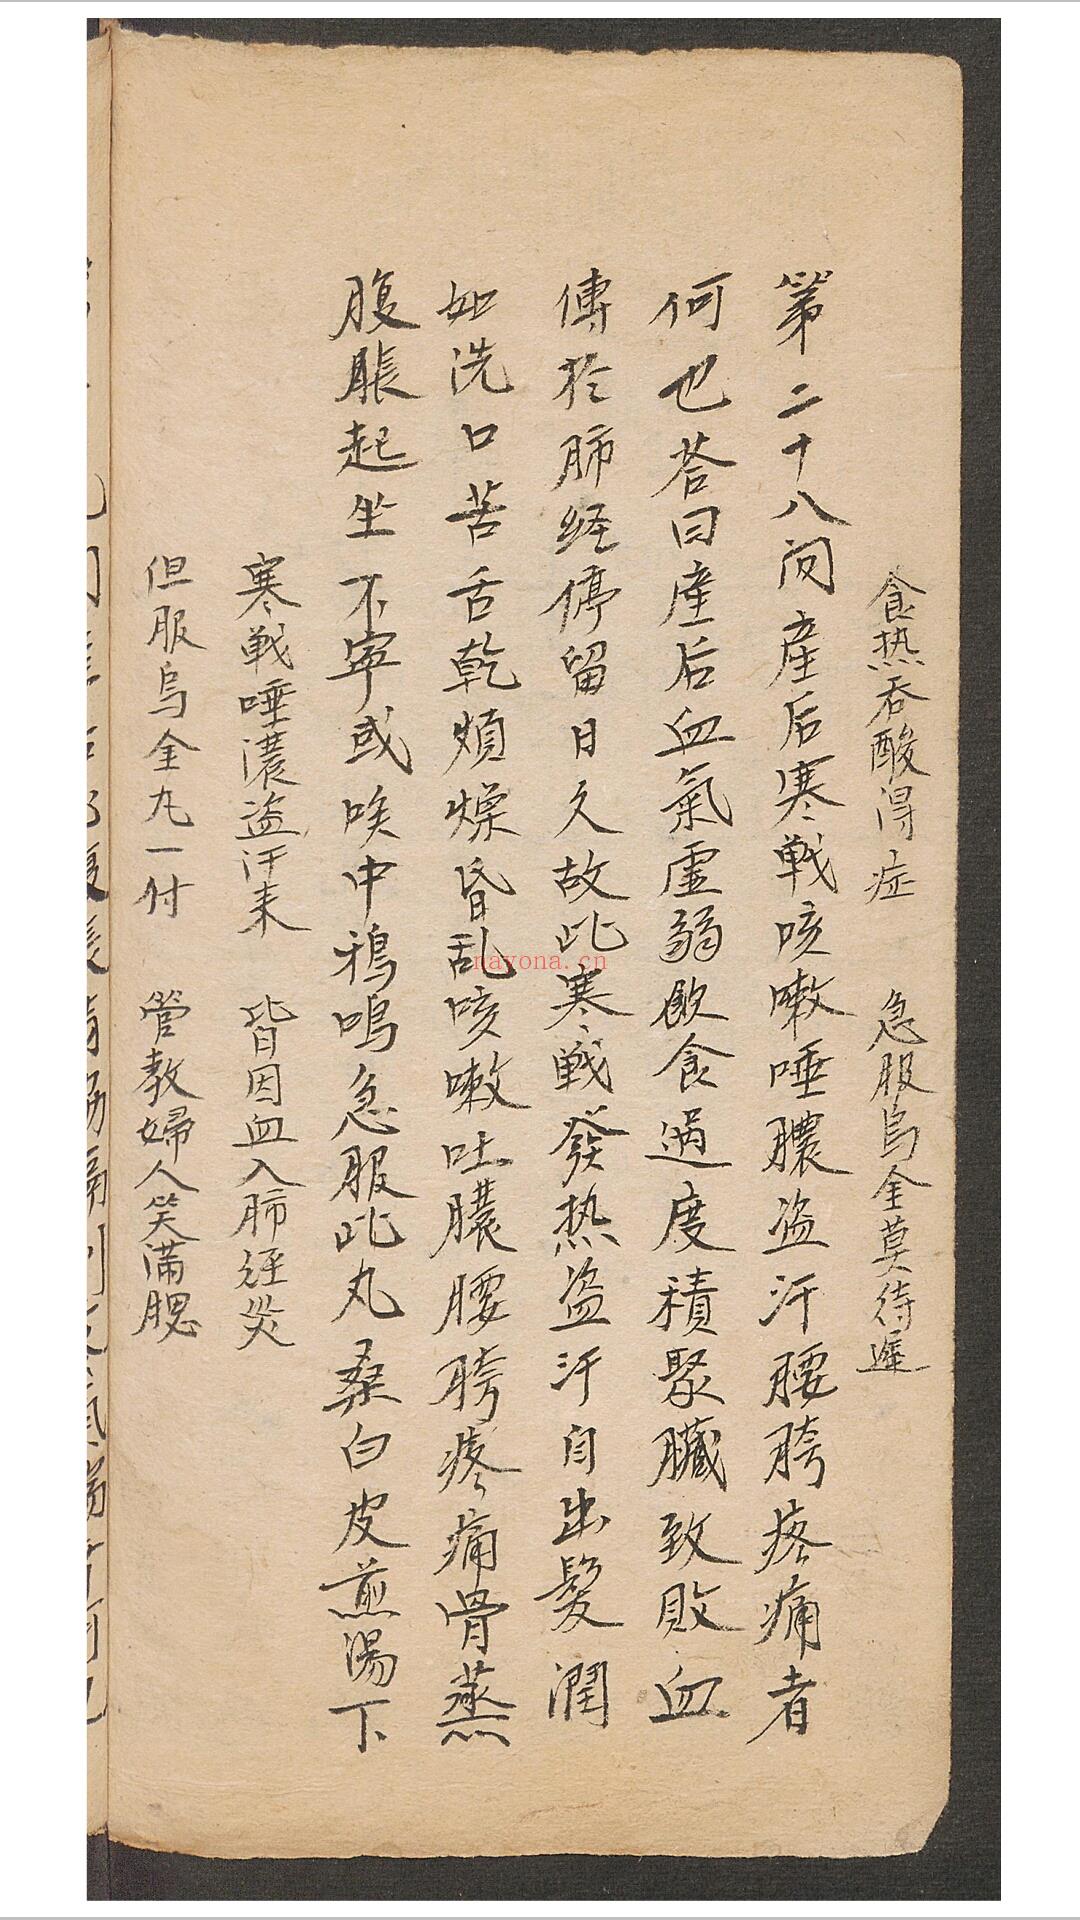 食热吞酸得症　急服烏金莫待遲
第二十八问産后寒戦咳嗽唾膿盗汗腰胯疼痛者
何也荅曰産后血氣虚弱飲食過度積聚臟致敗血
傳於肺経停留日久故此寒戦發热盗汗自出髮潤
如洗口苦舌乾煩燥昏乱咳嗽吐膿腰胯疼痛骨蒸
腹脹起坐不寕或唉中鴉鳴急服此丸桑白皮煎湯下
寒戦唾濃盗汗来　皆因血入肺経災
但服烏金丸一付　管教婦人笑满腮
nayona.cn